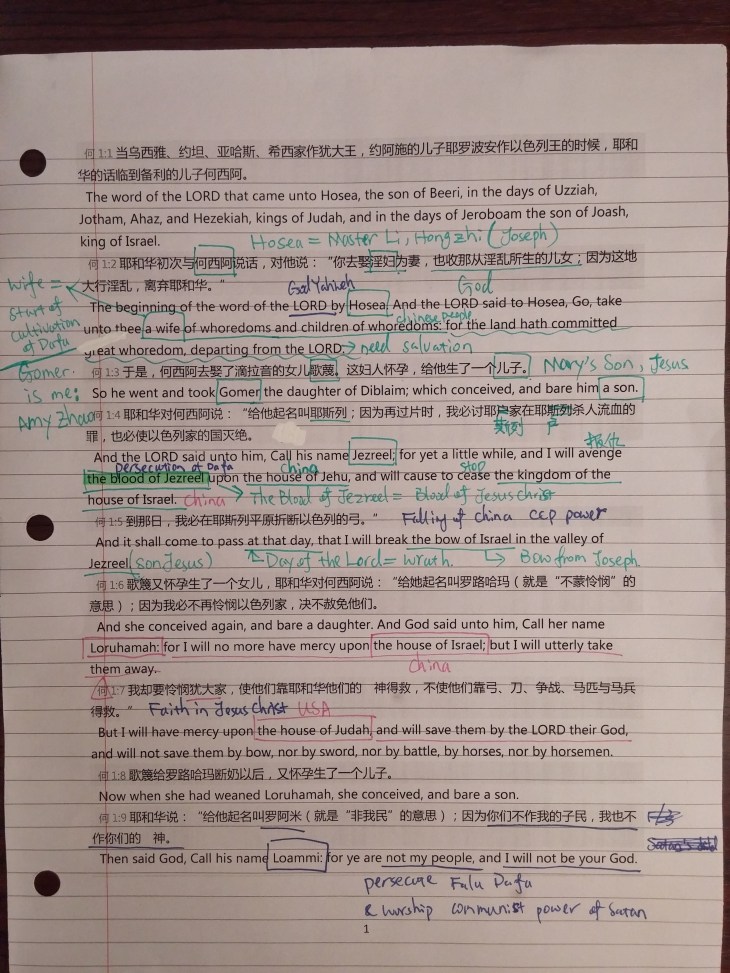 何 1:1 当乌西雅、约坦、亚哈斯、希西家作犹大王，约阿施的儿子耶罗波安作以色列王的时候，耶和
华的话临到备利的儿子何西阿。
The word of the LORD that came unto Hosea, the son of Beeri, in the days of Uzziah,
Jotham, Ahaz, and Hezekiah, kings of Judah, and in the days of Jeroboam the son of Joash,
king of Israel.
Hosea = Master Li, Hongzhi (Joseph)
何 1:2 耶和华初次与何西阿说话，对他说：“你去娶淫妇为妻，也收那从淫乱所生的儿女；因为这地
大行淫乱，离弃耶和华。”
God Yahweh
God
wife =
start of
cultivation
of Dafa
The beginning of the word of the LORD by Hosea. And the LORD said to Hosea, Go, take
chinese people
unto thee a wife of whoredoms and children of whoredoms: for the land hath committed
great whoredom, departing from the LORD.
need salvation
Gomer
is me:
Amy Zhao
何 1:3 于是，何西阿去娶了滴拉音的女儿歌篾。这妇人怀孕，给他生了一个儿子。
Mary's Son, Jesus
So he went and took Gomer the daughter of Diblaim; which conceived, and bare him a son.
何 1:4 耶和华对何西阿说：“给他起名叫耶斯列；因为再过片时，我必讨耶户家在耶斯列杀人流血的
罪，也必使以色列家的国灭绝。
斯列
户
And the LORD said unto him, Call his name Jezreel; for yet a little while, and I will avenge
persecution of Dafa
china
stop
the blood of Jezreel upon the house of Jehu, and will cause to cease the kingdom of the
house of Israel.
China
The Blood of Jezreel = Blood of Jesus Christ
何 1:5 到那日，我必在耶斯列平原折断以色列的弓。”
Falling of China CCP power
And it shall come to pass at that day, that I will break the bow of Israel in the valley of
Jezreel.
(son Jesus)
Day of the Lord = wrath.
Bow from Joseph.
何 1:6 歌篾又怀孕生了一个女儿，耶和华对何西阿说：“给她起名叫罗路哈玛（就是“不蒙怜悯”的
意思）；因为我必不再怜悯以色列家，决不赦免他们。
And she conceived again, and bare a daughter. And God said unto him, Call her name
Loruhamah: for I will no more have mercy upon the house of Israel; but I will utterly take
them away.
china
何 1:7 我却要怜悯犹大家，使他们靠耶和华他们的　神得救，不使他们靠弓、刀、争战、马匹与马兵
得救。”
Faith in Jesus Christ
USA
But I will have mercy upon the house of Judah, and will save them by the LORD their God,
and will not save them by bow, nor by sword, nor by battle, by horses, nor by horsemen.
何 1:8 歌篾给罗路哈玛断奶以后，又怀孕生了一个儿子。
Now when she had weaned Loruhamah, she conceived, and bare a son.
何 1:9 耶和华说：“给他起名叫罗阿米（就是“非我民”的意思）；因为你们不作我的子民，我也不
作你们的　神。
Then said God, Call his name Loammi: for ye are not my people, and I will not be your God.
persecute Falu Dafa
& wurship communist power of Satan
1